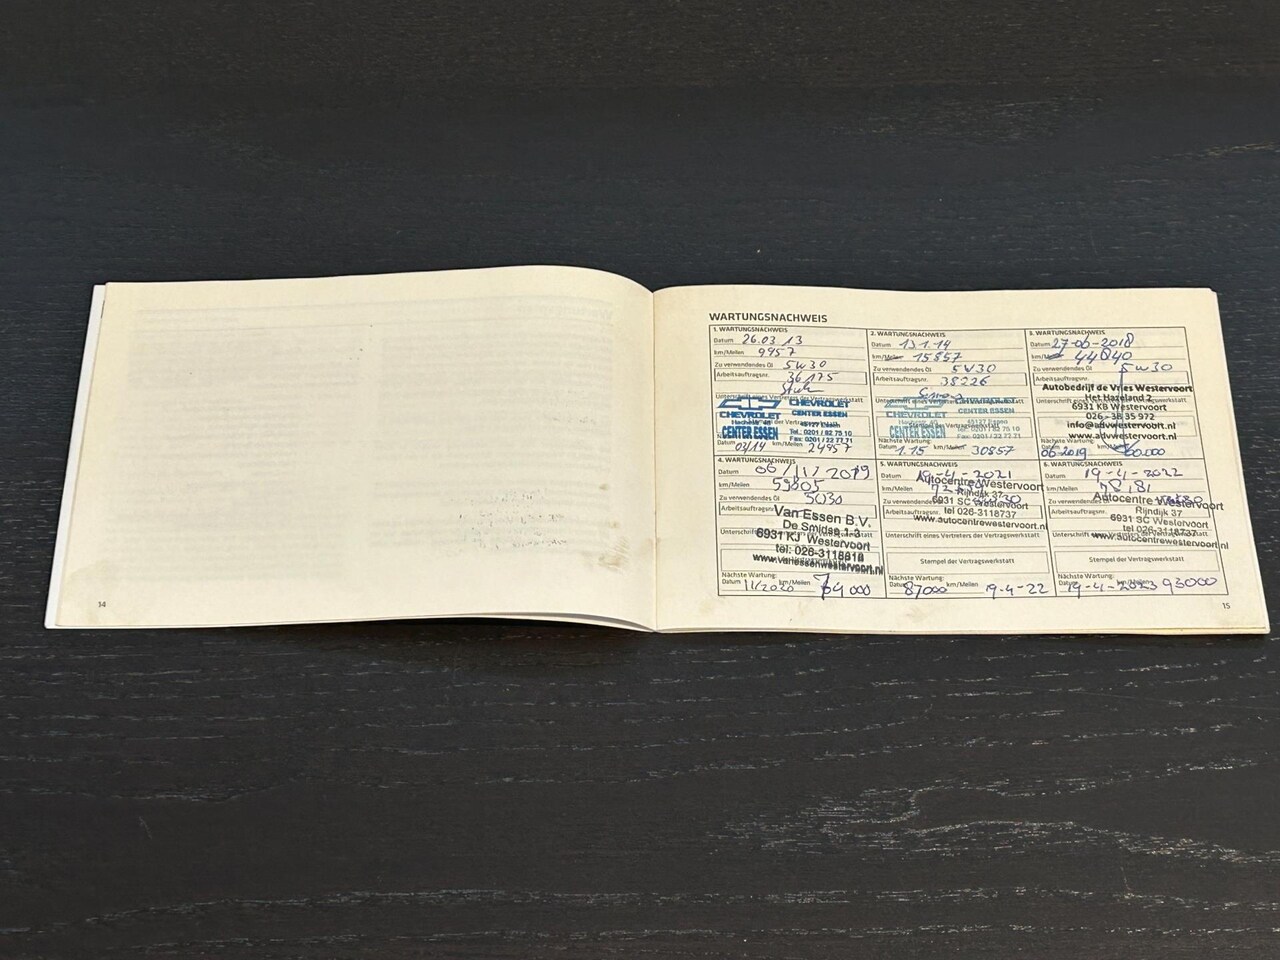 WARTUNGSNACHWEIS
1. WARTUNGSNACHWEIS
Datum 26.03 13
km/Meilen 9957
Zu verwendendes Öl 5W30
Arbeitsauftragsnr. 36175
Unterschrift eines Vertreters der Vertragswerkstatt
CHEVROLET
CENTER ESSEN
CHEVROLET
CENTER ESSEN
45127 Essen
Tel.: 0201 / 82 75 10
Fax: 0201 / 22 77 71
Datum 03/14 km/Meilen 24957
2. WARTUNGSNACHWEIS
Datum 13.1.14
km/Meilen 15857
Zu verwendendes Öl 5W30
Arbeitsauftragsnr. 38226
Unterschrift eines Vertreters der Vertragswerkstatt
CHEVROLET
CENTER ESSEN
CHEVROLET
CENTER ESSEN
45127 Essen
Tel.: 0201 / 82 75 10
Fax: 0201 / 22 77 71
Nächste Wartung:
Datum 1.15 km/Meilen 30857
3. WARTUNGSNACHWEIS
Datum 27-06-2018
km/Meilen 44040
Zu verwendendes Öl 5W30
Arbeitsauftragsnr.
Autobedrijf de Vries Westervoort
Het Hazeland 2
6931 KB Westervoort
026 - 38 35 972
info@advwestervoort.nl
www.advwestervoort.nl
Nächste Wartung:
06 2019 60.000
4. WARTUNGSNACHWEIS
Datum 06/11/2019
km/Meilen 53805
Zu verwendendes Öl 5030
Arbeitsauftragsnr.
Van Essen B.V.
De Smidse 1-3
6931 KJ Westervoort
tel: 026-3118818
www.vanessenwestervoort.nl
Datum 11/2020 km/Meilen 74000
5. WARTUNGSNACHWEIS
Datum 19-4-2021
km/Meilen
Zu verwendendes Öl
Arbeitsauftragsnr.
Autocentre Westervoort
Rijndijk 37
6931 SC Westervoort
tel 026-3118737
www.autocentrewestervoort.nl
Unterschrift eines Vertreters der Vertragswerkstatt
Stempel der Vertragswerkstatt
Nächste Wartung:
Datum 87000 km/Meilen 19-4-22
6. WARTUNGSNACHWEIS
Datum 19-4-2022
km/Meilen 78181
Zu verwendendes Öl
Arbeitsauftragsnr.
Autocentre Westervoort
Rijndijk 37
6931 SC Westervoort
tel 026-3118737
www.autocentrewestervoort.nl
Unterschrift eines Vertreters der Vertragswerkstatt
Stempel der Vertragswerkstatt
Nächste Wartung:
Datum 19-4-2023 km/Meilen 93000
14
15